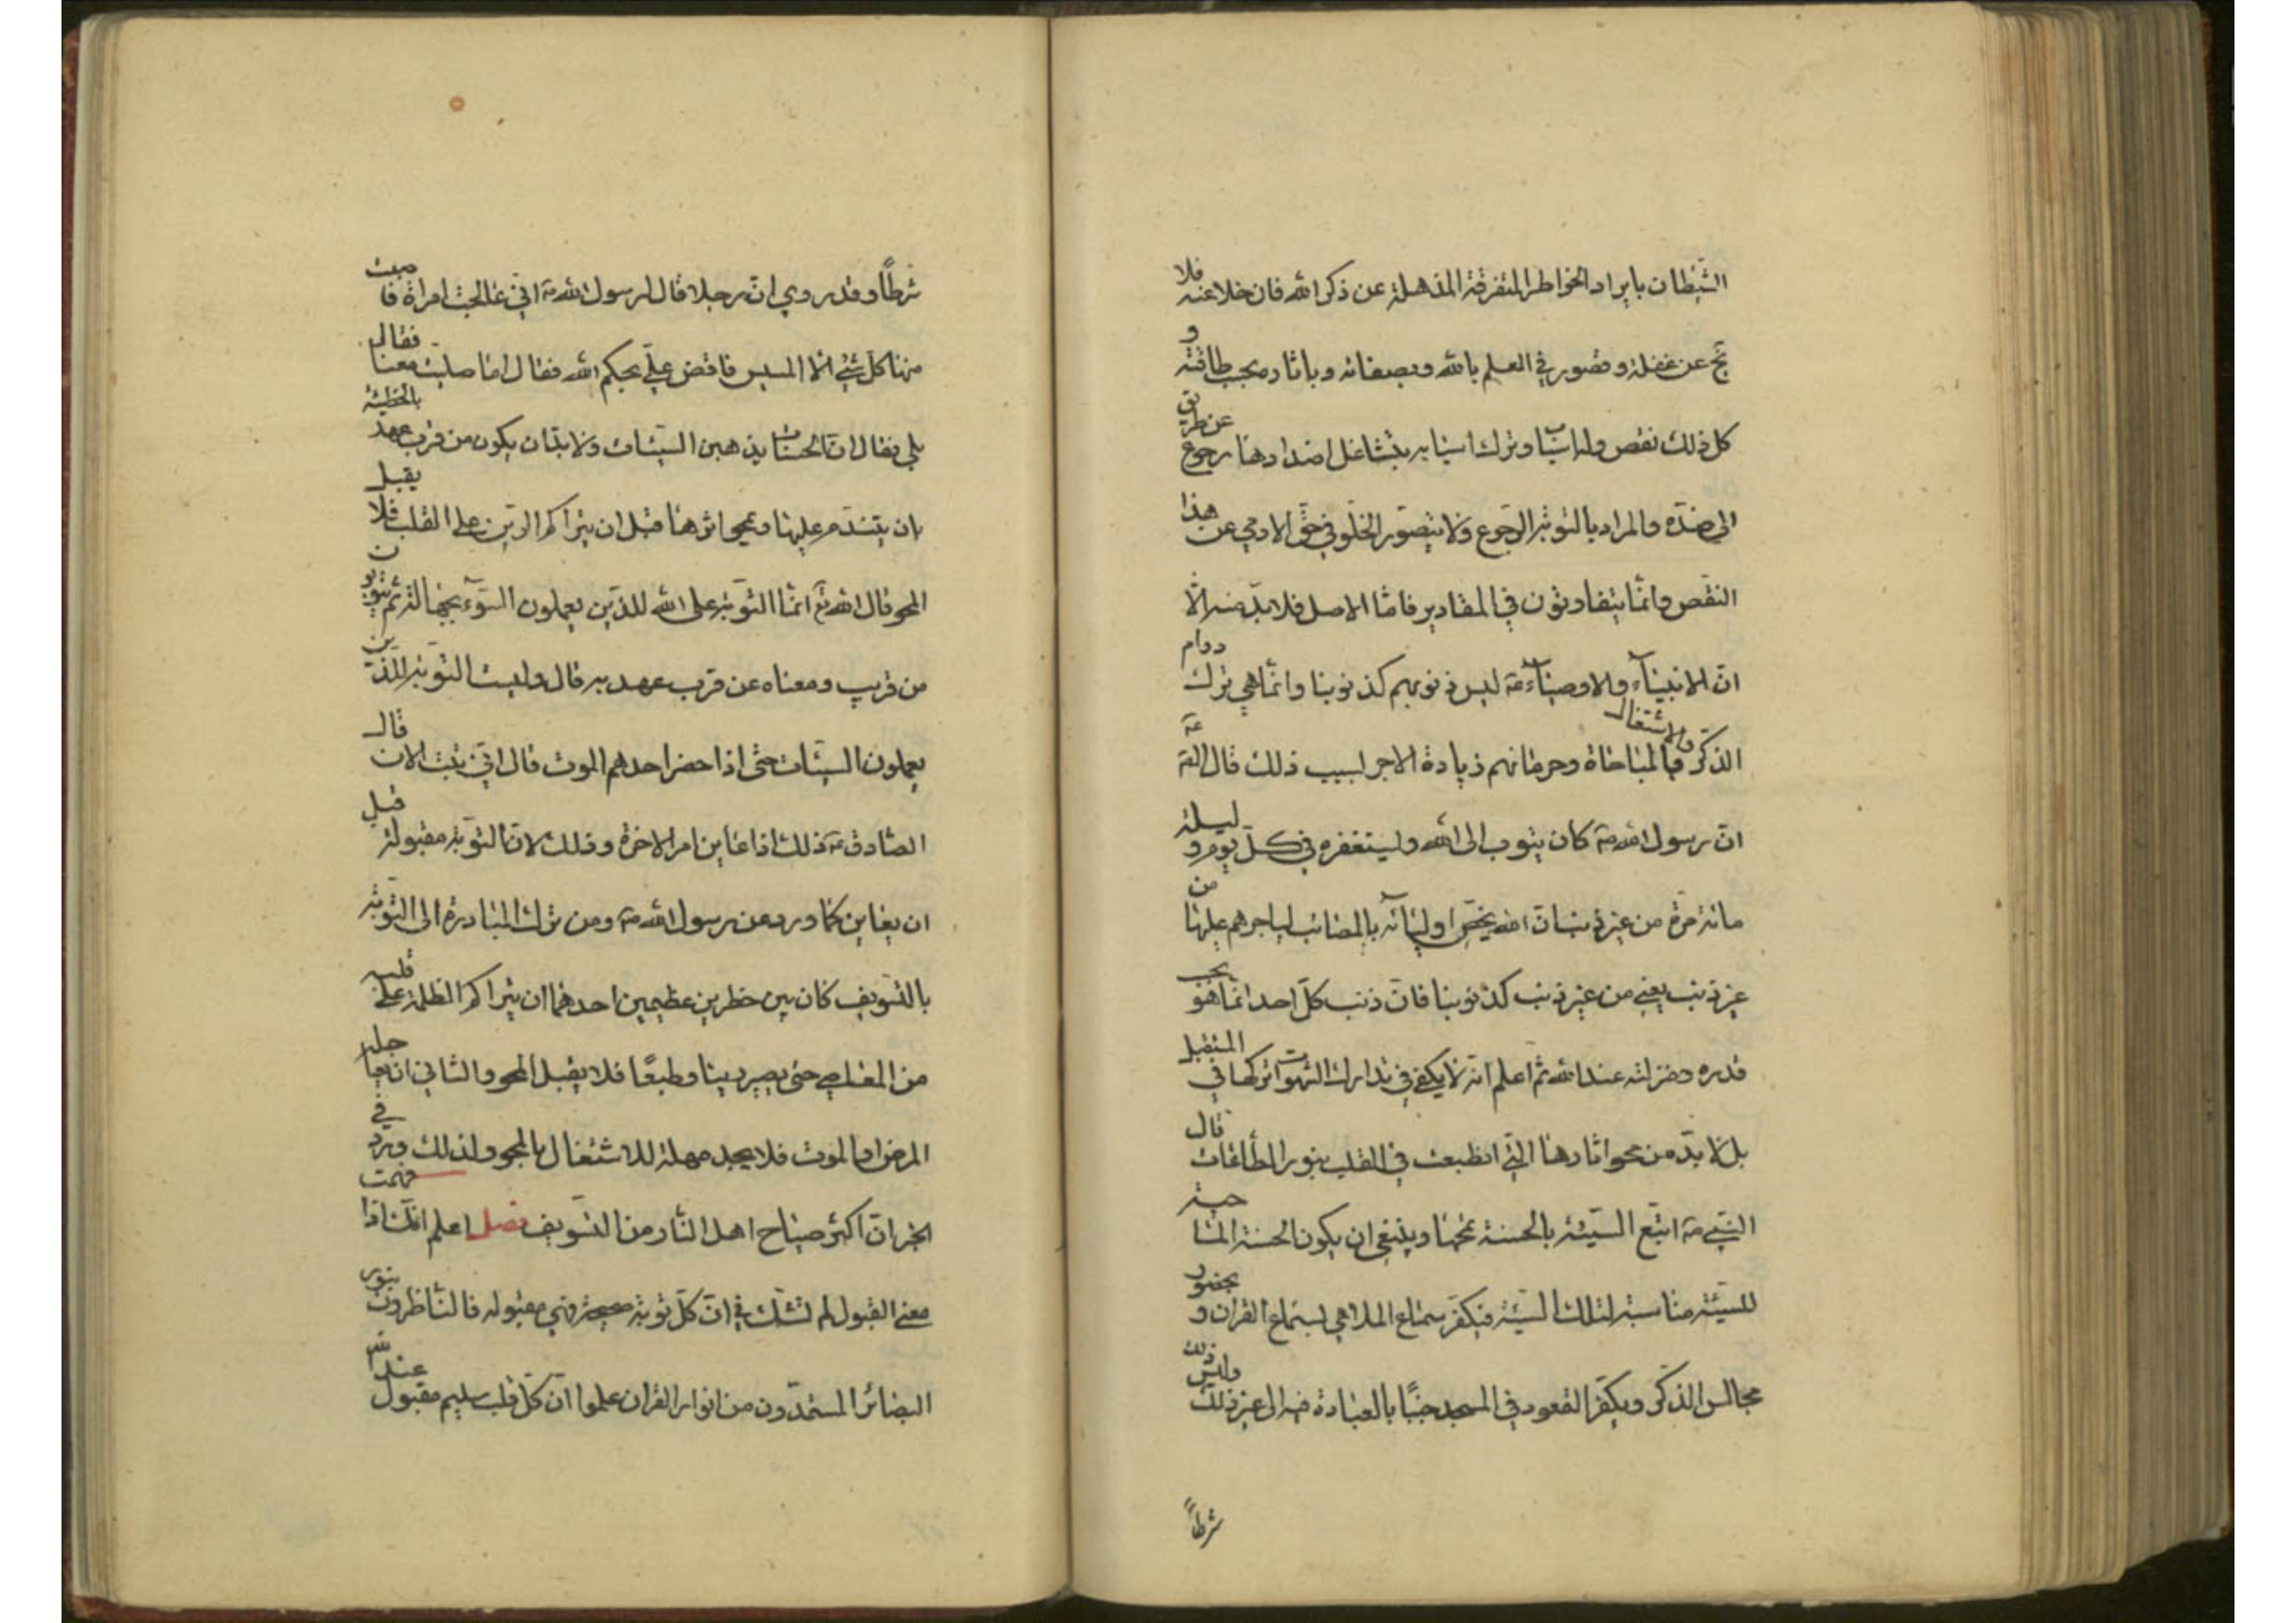 الشيطان بايراد الخواطر المتفرقة المذهلة عن ذكر الله فان خلا عنه فلا
يخ عن غفلة وقصور في العلم بالله وبصفاته وباثاره بحسب طاقته و
كل ذلك نقص وله اسباب وترك اسبابه بتشاغل اضدادها رجوع عن طريق
الى ضده والمراد بالتوبة الرجوع ولا يتصور الخلو في حق الادمي عن هذا
النقص وانما يتفاوتون في المقادير فاما الاصل فلا بد منه الا
ان الانبياء والاوصياء ع ليس ذنوبهم كذنوبنا وانما هي ترك دوام
الذكر والاشتغال بالمباحات وحرمانهم زيادة الاجر بسبب ذلك قال الص ع
ان رسول الله ص كان يتوب الى الله ويستغفره في كل يوم وليلة
مائة مرة من غير ذنب ان الله يخص اولياءه بالمصائب لياجرهم عليها من
غير ذنب يعني من غير ذنب كذنوبنا فان ذنب كل احد انما هو بحسب
قدره ومنزلته عند الله ثم اعلم انه لا يكفي في تدارك الشهوات تركها في المستقبل
بل لا بد من محو اثارها التي انطبعت في القلب بنور الطاعات قال
النبي ص اتبع السيئة بالحسنة تمحها وينبغي ان يكون الحسنة الماحية
للسيئة مناسبة لتلك السيئة فيكفر سماع الملاهي بسماع القران و بحضور
مجالس الذكر ويكفر القعود في المسجد جنبا بالعبادة فيه الى غير ذلك وليس ذلك
شرطاً
شرطاً وقد روي ان رجلا قال لرسول الله ص اني عالجت امراة فاصبت
منها كل شيء الا المسيس فاقض علي بحكم الله فقال اما صليت معنا فقال
بلى فقال ان الحسنات يذهبن السيئات ولا بد ان يكون من قرب عهد بالخطيئة
بان يتندم عليها ويمحو اثرها قبل ان يتراكم الرين على القلب فلا يقبل
المحو قال الله تع انما التوبة على الله للذين يعملون السوء بجهالة ثم يتوبون
من قريب ومعناه عن قرب عهد به قال وليست التوبة للذين
يعملون السيئات حتى اذا حضر احدهم الموت قال اني تبت الان قال
الصادق ع ذلك اذا عاين امر الاخرة وذلك لان التوبة مقبولة قبل
ان يعاين كما ورد عن رسول الله ص ومن ترك المبادرة الى التوبة
بالتسويف كان بين خطرين عظيمين احدهما ان يتراكم الظلمة على قلبه
من المعاصي حتى يصير رينا وطبعا فلا يقبل المحو والثاني ان يعاجله
المرض او الموت فلا يجد مهلة للاشتغال بالمحو ولذلك ورد في
الخبر ان اكثر صياح اهل النار من التسويف فصل اعلم انك اذا فهمت
معنى القبول لم تشك في ان كل توبة صحيحة فهي مقبوله فالناظرون بنور
البصائر المستمدون من انوار القران علموا ان كل قلب سليم مقبول عند الله